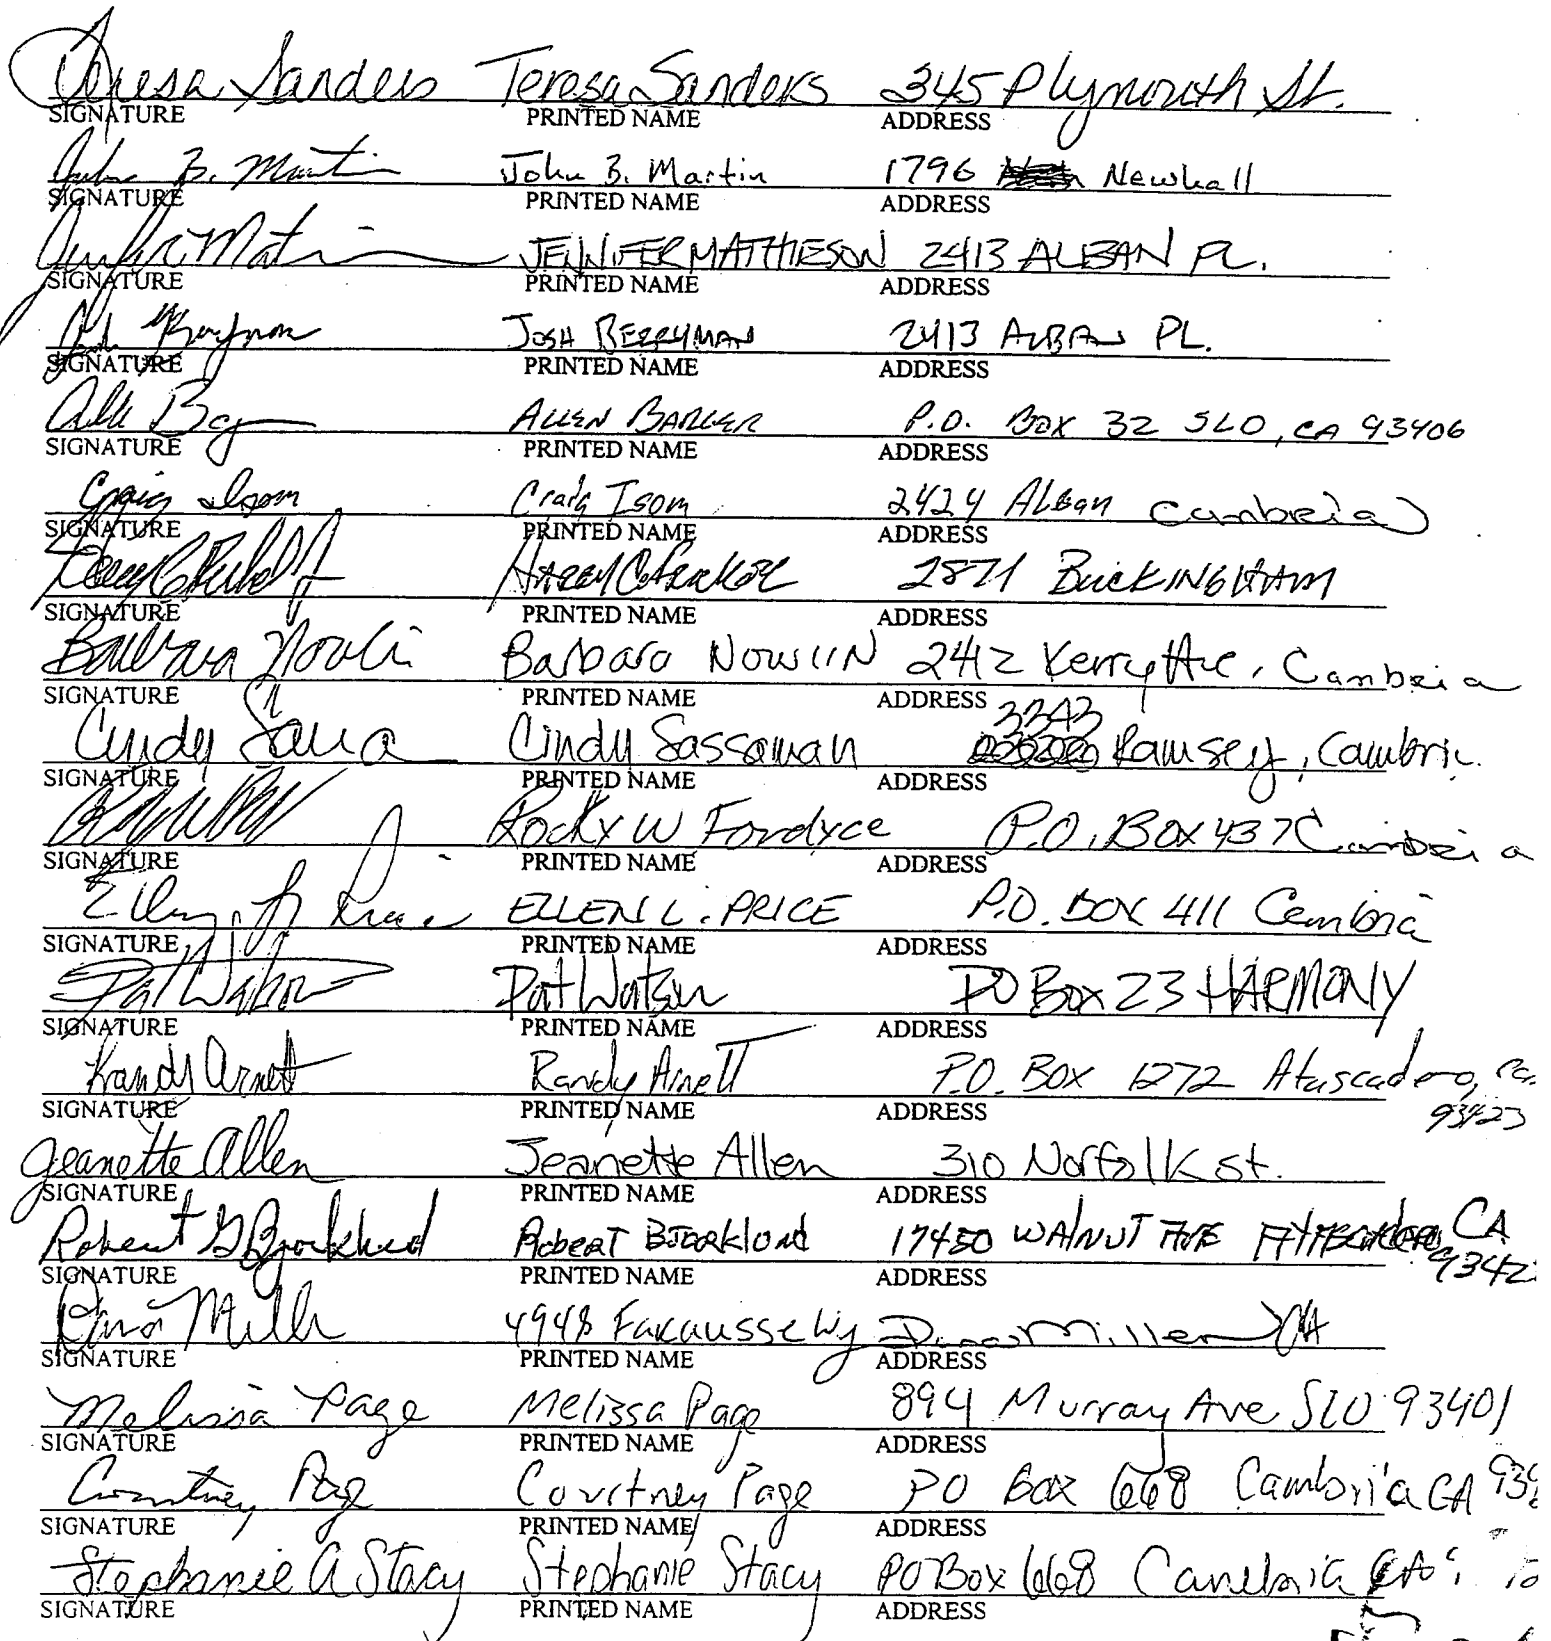 Teresa Sanders Teresa Sanders 345 Plymouth St.
SIGNATURE PRINTED NAME ADDRESS
John B. Martin John B. Martin 1796 Newhall
SIGNATURE PRINTED NAME ADDRESS
JENNIFER MATHIESON 2413 ALBAN PL.
SIGNATURE PRINTED NAME ADDRESS
Josh Berryman JOSH BERRYMAN 2413 ALBAN PL.
SIGNATURE PRINTED NAME ADDRESS
ALLEN BARGER P.O. BOX 32 SLO, CA 93406
SIGNATURE PRINTED NAME ADDRESS
Craig Isom Craig Isom 2424 Alban Cambria
SIGNATURE PRINTED NAME ADDRESS
2871 BUCKINGHAM
SIGNATURE PRINTED NAME ADDRESS
Barbara Nowlin Barbara Nowlin 2412 Kerry Ave, Cambria
SIGNATURE PRINTED NAME ADDRESS
3343
Cindy Cindy Sassaman Ramsey, Cambria
SIGNATURE PRINTED NAME ADDRESS
Rocky W Fordyce P.O. Box 437 Cambria
SIGNATURE PRINTED NAME ADDRESS
Ellen L. Price ELLEN L. PRICE P.O. BOX 411 Cambria
SIGNATURE PRINTED NAME ADDRESS
Pat Watson Pat Watson PO Box 23 HARMONY
SIGNATURE PRINTED NAME ADDRESS
Randy Arnett Randy Arnett P.O. Box 1272 Atascadero, Ca.
93423
SIGNATURE PRINTED NAME ADDRESS
Jeanette Allen Jeanette Allen 310 Norfolk st.
SIGNATURE PRINTED NAME ADDRESS
Robert G Bjorklund Robert Bjorklund 17450 WALNUT AVE CA
9342
SIGNATURE PRINTED NAME ADDRESS
Dina Miller 4948 Dina Miller CA
SIGNATURE PRINTED NAME ADDRESS
Melissa Page Melissa Page 894 Murray Ave SLO 93401
SIGNATURE PRINTED NAME ADDRESS
Courtney Page Courtney Page PO Box 668 Cambria CA
SIGNATURE PRINTED NAME ADDRESS
Stephanie A Stacy Stephanie Stacy PO Box 668 Cambria CA
SIGNATURE PRINTED NAME ADDRESS